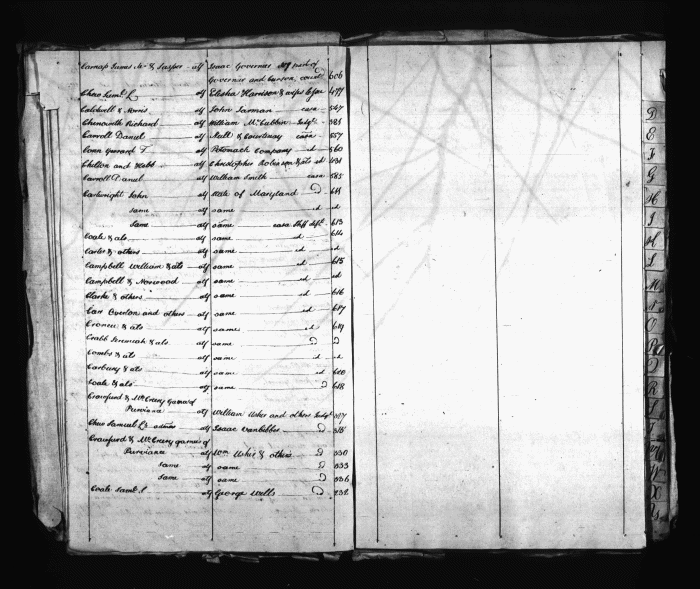 Carnap James Jr & Jasper atf Isaac Governor
Governor and Curson, court 606
Chew Saml L atf Elisha Harrison & wife 477
Caldwell & Norris atf John Jarman casa 547
Chenowith Richard atf William McCubbin Judgt 583
Carroll Daniel atf Mull & Courtenay casa 557
Conn Gerrard T atf Potomack Company id 560
Chilton and Hebb atf Christopher Robinson & als id
Carroll Daniel atf William Smith casa 585
Cartwright John atf State of Maryland D 611
same atf same id id
same atf same casa Shff 613
Coale & als atf same id 614
Carter & others atf same id id
Campbell William & als atf same id 615
Campbell & Norwood atf same id id
Clarke & others atf same id 616
Carr Overton and others atf same id 617
Cronee & als atf same id 619
Crabb Jeremiah & als atf same D D
Combs & als atf same id id
Carbury & als atf same id 620
Coale & als atf same D 618
Crawfurd & McCreery garns of
Purviance atf William Usher and others Judgt 327
Chew Samuel Ls admrs atf Isaac Vanbibber D 315
Crawfurd & McCreery garnies of
Purviance atf Wm Usher & others D 330
same atf same D 333
same atf same D 336
Coale Saml S atf George Wells D 232
D
E
F
G
H
I
K
L
M
N
O
P
Q
R
S
T
W
X
Y